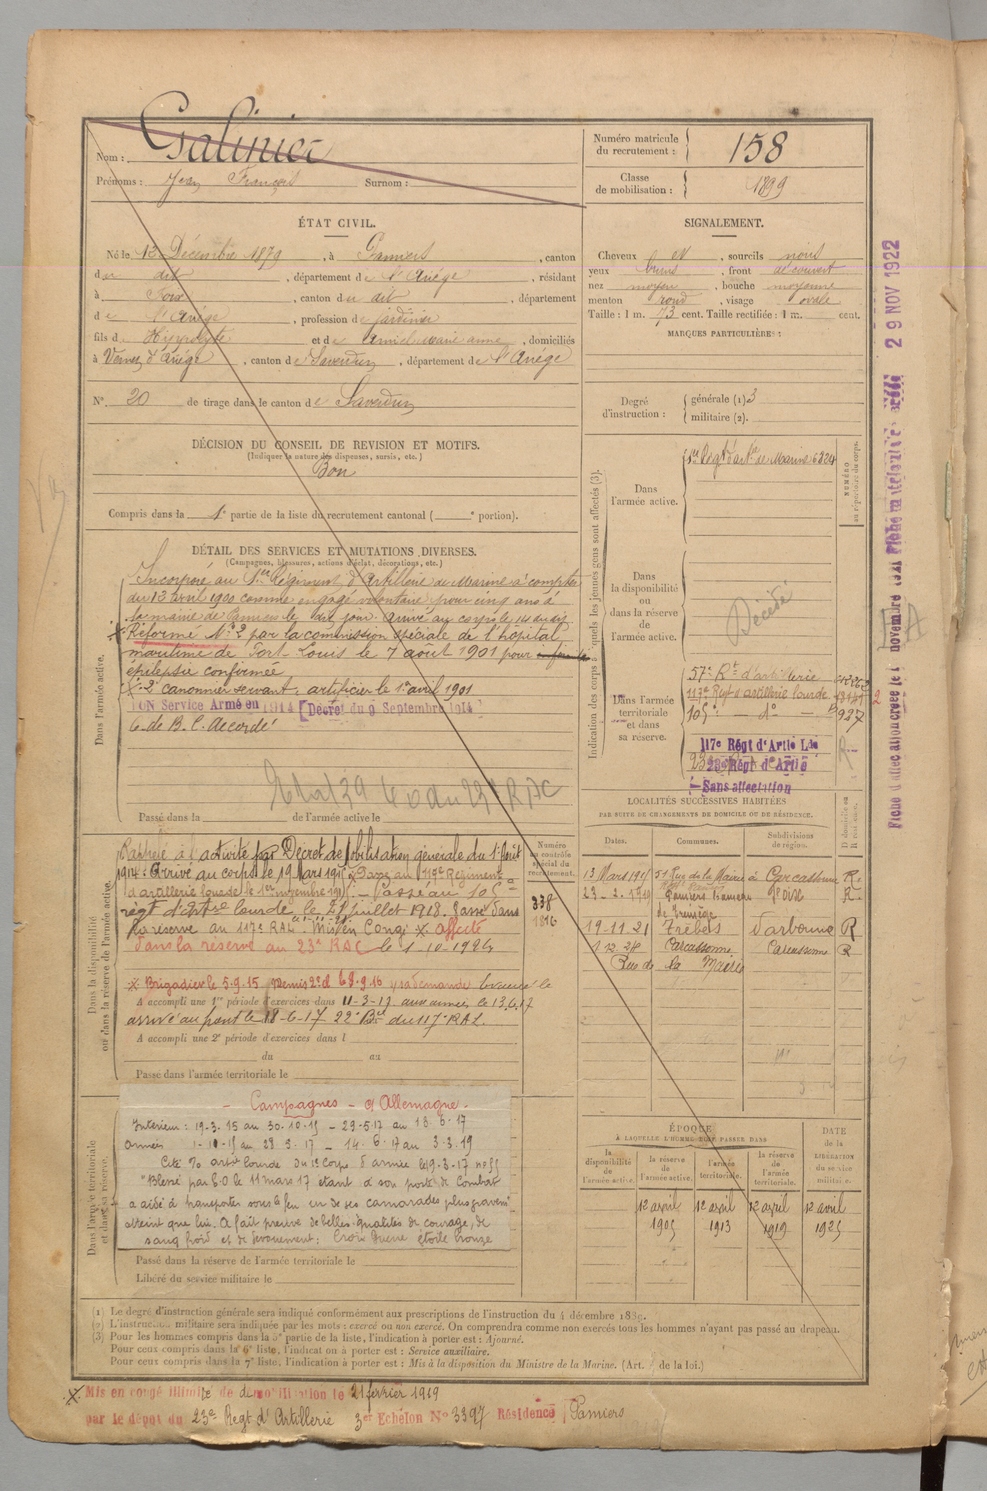 Nom : Galinier
Prénoms : Jean François Surnom :
Numéro matricule
du recrutement : 158
Classe
de mobilisation : 1899
ÉTAT CIVIL.
Né le 13 Décembre 1879, à Pamiers, canton
du dit, département de l'Ariège, résidant
à Foix, canton du dit, département
de l'Ariège, profession de jardinier
fils d Hyppolyte et de Amiel marie anne, domiciliés
à Vernet d'Ariège, canton de Saverdun, département de l'Ariège
N° 20 de tirage dans le canton de Saverdun
SIGNALEMENT.
Cheveux et, sourcils noirs
yeux bruns, front découvert
nez moyen, bouche moyenne
menton rond, visage ovale
Taille : 1 m. 73 cent. Taille rectifiée : 1 m. cent.
MARQUES PARTICULIÈRES :
Degré
d'instruction :
générale (1) 3
militaire (2).
DÉCISION DU CONSEIL DE REVISION ET MOTIFS.
(Indiquer la nature des dispenses, sursis, etc.)
Bon
Compris dans la 1e partie de la liste du recrutement cantonal ( e portion).
DÉTAIL DES SERVICES ET MUTATIONS DIVERSES.
(Campagnes, blessures, actions d'éclat, décorations, etc.)
Dans l'armée active.
Incorporé au 1er Régiment d'Artillerie de Marine à compter
du 13 avril 1900 comme engagé volontaire pour cinq ans à
la mairie de Pamiers le dit jour arrivé au corps le 14 dudit
Réformé N° 2 par la commission spéciale de l'hôpital
maritime de Port Louis le 7 août 1901 pour
épilepsie confirmée
X 2e canonnier servant, artificier le 1er avril 1901
BON Service Armé en 1914 [Décret du 9 Septembre 1914]
C. de B. C. Accordé
Passé dans la de l'armée active le
Indication des corps auxquels les jeunes gens sont affectés (3).
Dans
l'armée active.
1er Regt d'arte de Marine 6224
NUMÉRO
au répertoire du corps.
Dans
la disponibilité
ou
dans la réserve
de
l'armée active.
Décédé
Dans l'armée
territoriale
et dans
sa réserve.
57e Rt d'artillerie
117e Regt d'artillerie lourde
105e — do — 927
117e Régt d'Artie Lde
23e Régt d'Artie
Sans affectation
Fiche d'affectation créée le 1 novembre 1921
29 NOV 1922
LOCALITÉS SUCCESSIVES HABITÉES
PAR SUITE DE CHANGEMENTS DE DOMICILE OU DE RÉSIDENCE.
Dates. Communes. Subdivisions de région.
13 Mars 1915 51 Rue de la Mairie à Carcassonne R.
23.2.1919 Pamiers Foix R.
19-11-21 Trèbes Narbonne R
1.12.28 Carcassonne Carcassonne R
Rue de la Mairie
Dans la disponibilité
ou dans la réserve de l'armée active.
Rappelé à l'activité par Décret de Mobilisation générale du 1er Août
1914. Arrivé au corps le 19 Mars 1915. Passé au 117e Régiment
d'artillerie lourde le 1er novembre 1915. — Passé au 105e
régt d'Artie lourde le 21 juillet 1918. Passé dans
la réserve au 117e RAL. Mis en Congé X. Affecté
dans la réserve au 23e RAC le 1-10-1924
Numéro
au contrôle
spécial du
recrutement.
338
1816
X Brigadier le 5.9.15 Remis 2e cl sa demande
A accompli une 1re période d'exercices dans 11-3-17 aux armées le 13.6.17
arrivé au front le 18-6-17 22e Bie du 117e RAL.
A accompli une 2e période d'exercices dans l
du au
Passé dans l'armée territoriale le
Dans l'armée territoriale
et dans sa réserve.
— Campagnes — d'Allemagne —
Intérieur : 19-3-15 au 30-10-15 — 29-5-17 au 13-6-17
Armées 1-10-15 au 28-5-17 — 14-6-17 au 3-3-19
Cité artie lourde du 1e Corps d'armée le 19-3-17 n° 55
"Blessé par E.O le 11 mars 17 étant à son poste de Combat
a aidé à transporter sous le feu un de ses camarades plus gravemt
atteint que lui. A fait preuve de belles qualités de courage, de
sang froid et de dévouement : Croix Guerre étoile bronze
Passé dans la réserve de l'armée territoriale le
Libéré du service militaire le
ÉPOQUE
À LAQUELLE L'HOMME DOIT PASSER DANS
la disponibilité de l'armée active.
la réserve de l'armée active.
l'armée territoriale.
la réserve de l'armée territoriale.
DATE
de la
LIBÉRATION
du service
militaire.
12 avril 1905
12 avril 1913
12 avril 1919
12 avril 1925
(1) Le degré d'instruction générale sera indiqué conformément aux prescriptions de l'instruction du 4 décembre 1889.
(2) L'instruction militaire sera indiquée par les mots : exercé ou non exercé. On comprendra comme non exercés tous les hommes n'ayant pas passé au drapeau.
(3) Pour les hommes compris dans la 5e partie de la liste, l'indication à porter est : Ajourné.
Pour ceux compris dans la 6e liste, l'indication à porter est : Service auxiliaire.
Pour ceux compris dans la 7e liste, l'indication à porter est : Mis à la disposition du Ministre de la Marine. (Art. de la loi.)
X Mis en congé illimité de démobilisation le 21 février 1919
par le dépôt du 23e Regt d'Artillerie 3e Echelon No 3397 Résidence Pamiers